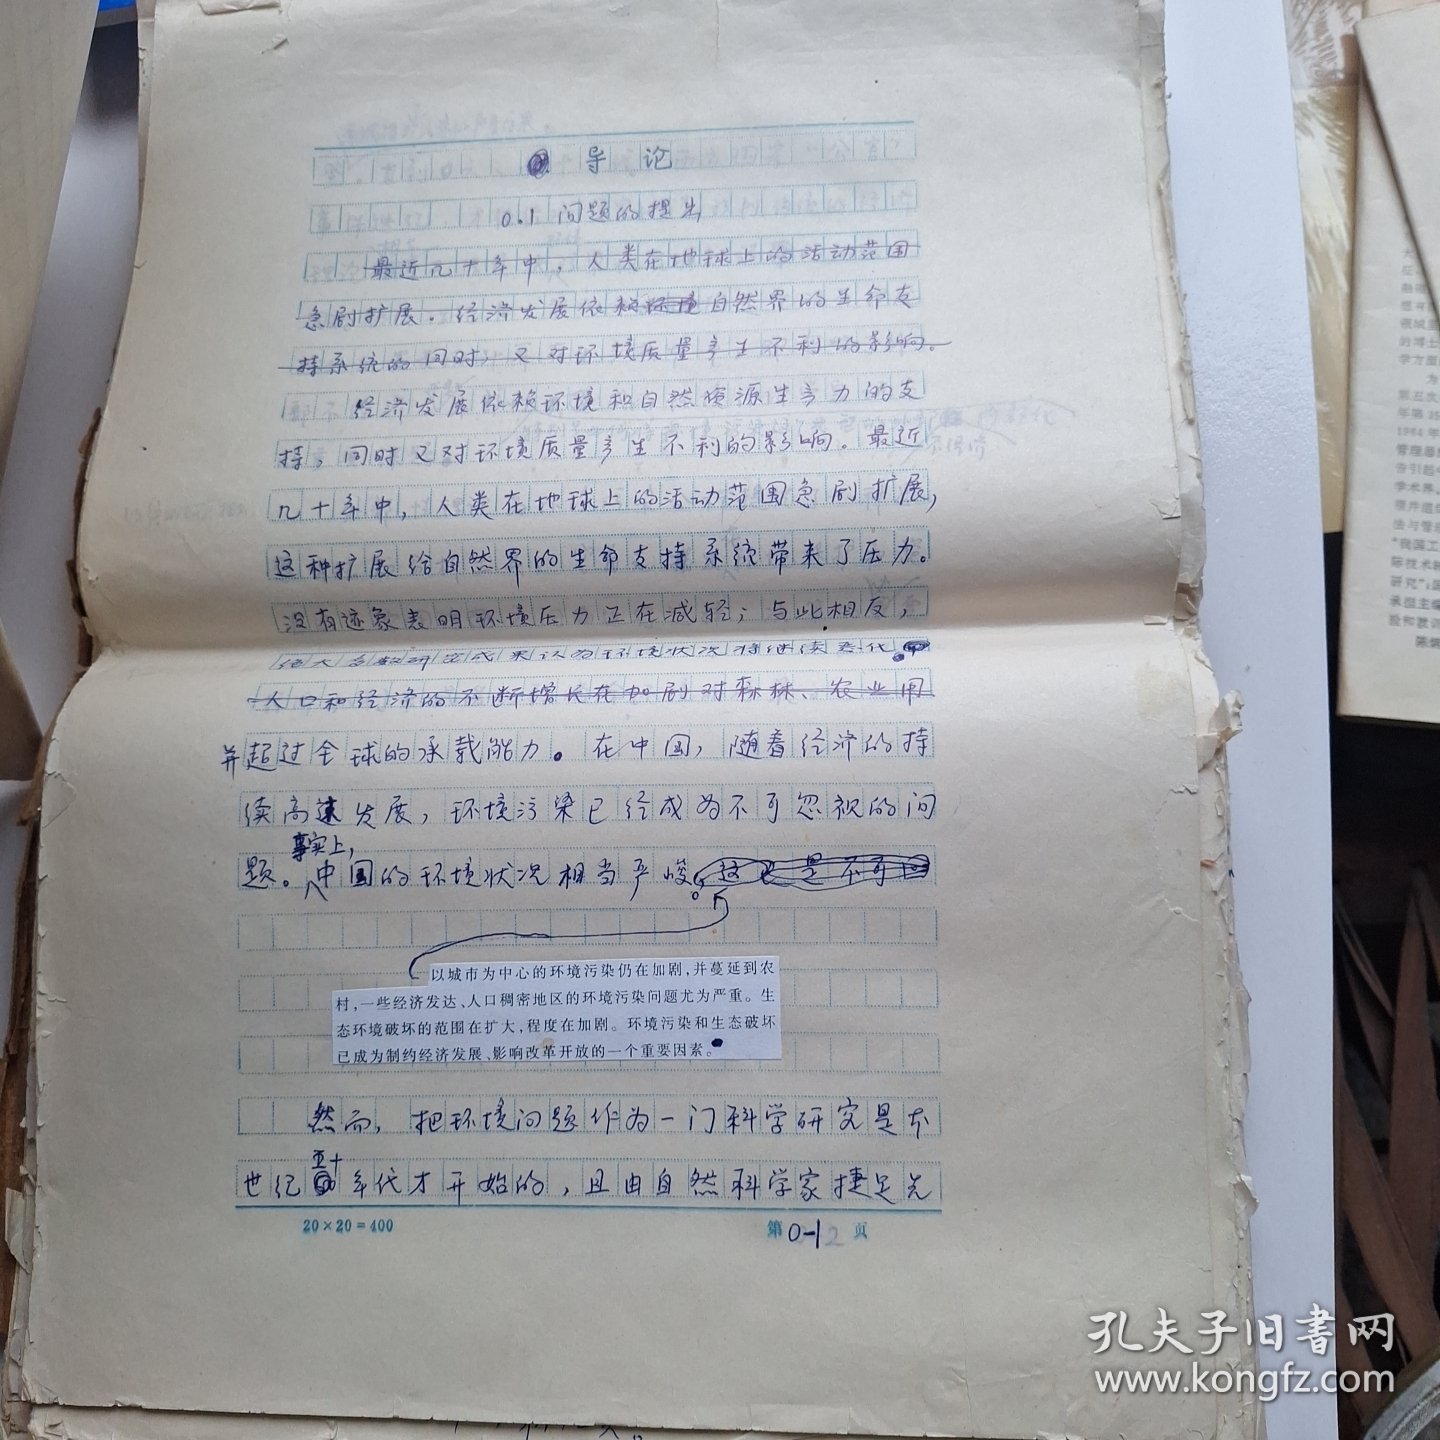 导论
0.1 问题的提出
最近几十年中，人类在地球上的活动范围
急剧扩展。经济发展依赖环境自然界的生命支
持系统的同时，又对环境质量产生不利的影响。
经济发展依赖环境和自然资源生产力的支
持，同时又对环境质量产生不利的影响。最近
几十年中，人类在地球上的活动范围急剧扩展，
这种扩展给自然界的生命支持系统带来了压力。
没有迹象表明环境压力正在减轻；与此相反，
绝大多数研究成果认为环境状况将继续恶化。
人口和经济的不断增长在加剧对森林、农业用
并超过全球的承载能力。在中国，随着经济的持
续高速发展，环境污染已经成为不可忽视的问
事实上，
题。中国的环境状况相当严峻。这是不可
以城市为中心的环境污染仍在加剧,并蔓延到农
村,一些经济发达、人口稠密地区的环境污染问题尤为严重。生
态环境破坏的范围在扩大,程度在加剧。环境污染和生态破坏
已成为制约经济发展、影响改革开放的一个重要因素。
然而，把环境问题作为一门科学研究是本
五十
世纪年代才开始的，且由自然科学家捷足先
20×20=400
第0-1页
为
第五次
1984年
管理
学术界
法与管
"我国工
际技术
研究";
承担主编
孔夫子旧书网
www.kongfz.com